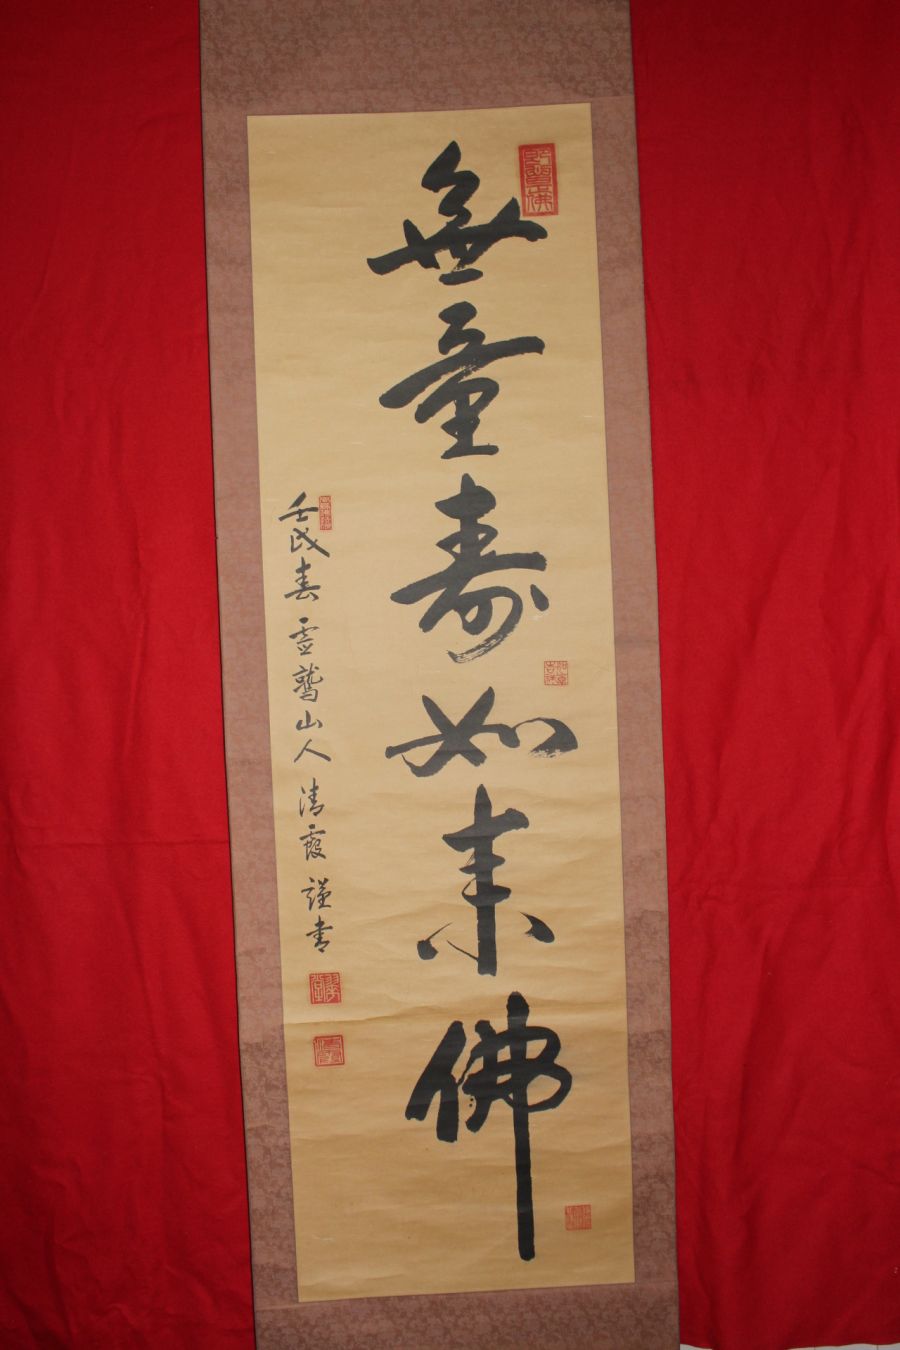 無量壽如來佛
壬戌春 霊鷲山人 清霞 謹書